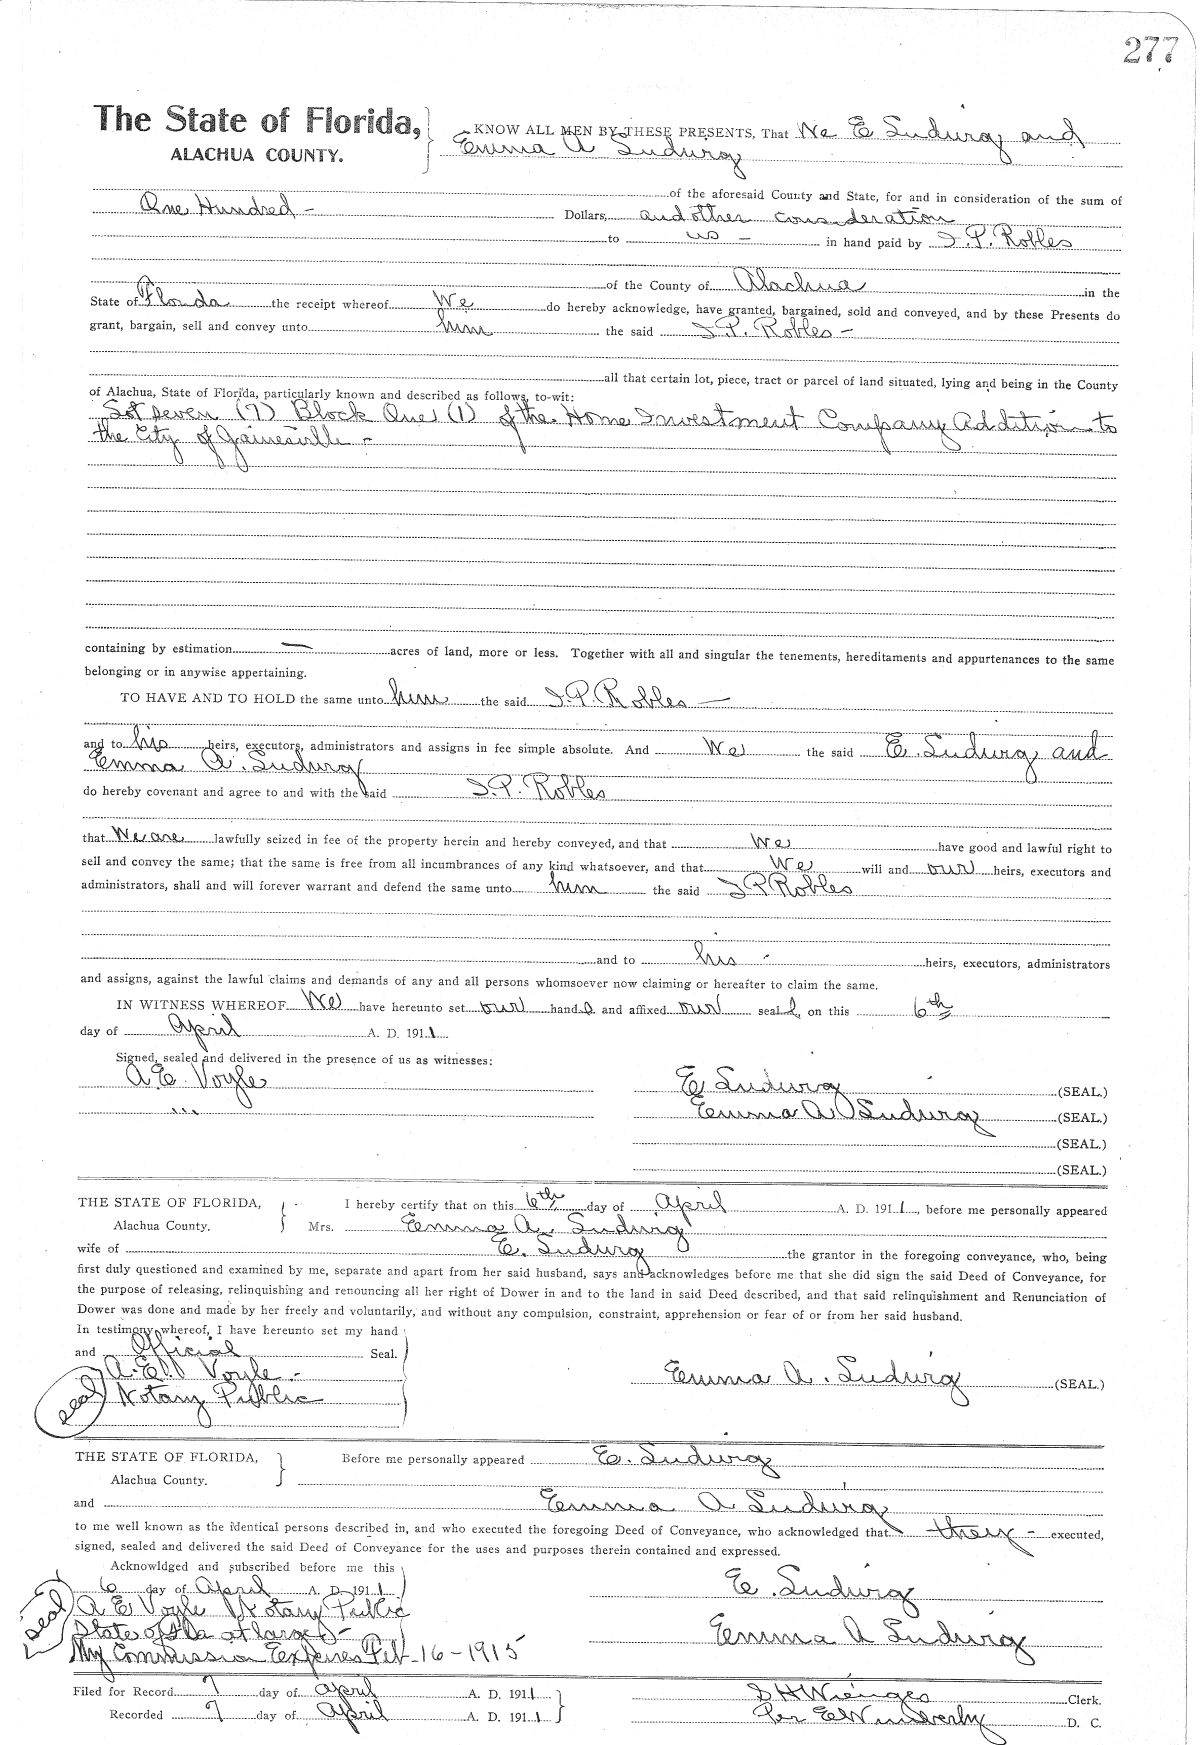 277
The State of Florida,
ALACHUA COUNTY.
KNOW ALL MEN BY THESE PRESENTS, That We E Ludwig and
Emma A Ludwig
of the aforesaid County and State, for and in consideration of the sum of
One Hundred - Dollars, and other consideration
to us - in hand paid by I.P. Robles
of the County of Alachua in the
State of Florida the receipt whereof We do hereby acknowledge, have granted, bargained, sold and conveyed, and by these Presents do
grant, bargain, sell and convey unto him the said I.P. Robles -
all that certain lot, piece, tract or parcel of land situated, lying and being in the County
of Alachua, State of Florida, particularly known and described as follows, to-wit:
Lot seven (7) Block One (1) of the Home Investment Company Addition to
the City of Gainesville -
containing by estimation — acres of land, more or less. Together with all and singular the tenements, hereditaments and appurtenances to the same
belonging or in anywise appertaining.
TO HAVE AND TO HOLD the same unto him the said I.P. Robles —
and to his heirs, executors, administrators and assigns in fee simple absolute. And We the said E. Ludwig and
Emma A. Ludwig
do hereby covenant and agree to and with the said I.P. Robles
that We are lawfully seized in fee of the property herein and hereby conveyed, and that We have good and lawful right to
sell and convey the same; that the same is free from all incumbrances of any kind whatsoever, and that We will and our heirs, executors and
administrators, shall and will forever warrant and defend the same unto him the said I P Robles
and to his - heirs, executors, administrators
and assigns, against the lawful claims and demands of any and all persons whomsoever now claiming or hereafter to claim the same.
IN WITNESS WHEREOF We have hereunto set our hands and affixed our seals, on this 6th
day of April A. D. 1911.
Signed, sealed and delivered in the presence of us as witnesses:
A.E. Voyle
E Ludwig (SEAL.)
Emma A. Ludwig (SEAL.)
(SEAL.)
(SEAL.)
THE STATE OF FLORIDA,
Alachua County.
I hereby certify that on this 6th day of April A. D. 1911, before me personally appeared
Mrs. Emma A. Ludwig
wife of E. Ludwig the grantor in the foregoing conveyance, who, being
first duly questioned and examined by me, separate and apart from her said husband, says and acknowledges before me that she did sign the said Deed of Conveyance, for
the purpose of releasing, relinquishing and renouncing all her right of Dower in and to the land in said Deed described, and that said relinquishment and Renunciation of
Dower was done and made by her freely and voluntarily, and without any compulsion, constraint, apprehension or fear of or from her said husband.
In testimony whereof, I have hereunto set my hand
and Official Seal.
A.E. Voyle -
seal Notary Public
Emma A. Ludwig (SEAL.)
THE STATE OF FLORIDA,
Alachua County.
Before me personally appeared E. Ludwig
and Emma A Ludwig
to me well known as the identical persons described in, and who executed the foregoing Deed of Conveyance, who acknowledged that they - executed,
signed, sealed and delivered the said Deed of Conveyance for the uses and purposes therein contained and expressed.
Acknowldged and subscribed before me this
6 day of April A. D. 1911
seal A E Voyle Notary Public
State of Fla at large -
My Commission Expires Feb - 16 - 1915
E. Ludwig
Emma A Ludwig
Filed for Record 7 day of April A. D. 1911
Recorded 7 day of April A. D. 1911
S H Wienges Clerk.
Per E Wimberly D. C.